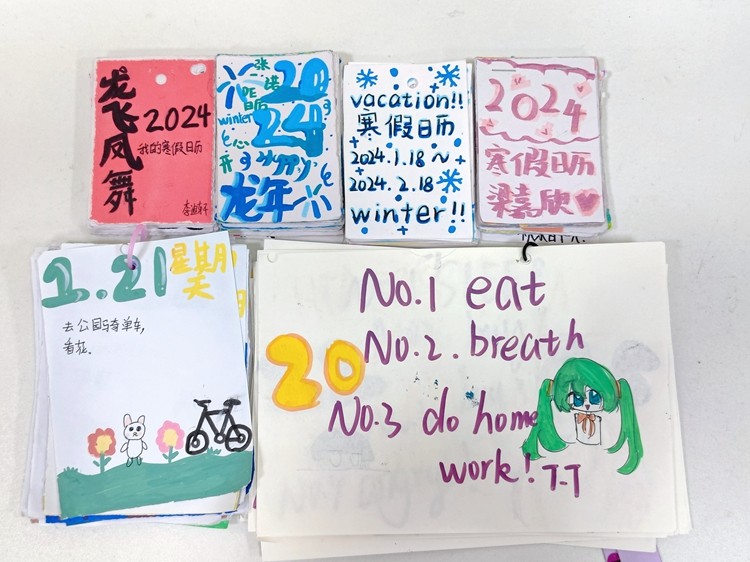 龙飞凤舞
2024
我的寒假日历
张
诺
20
24
日历
winter
开
心
happy
龙年
vacation!!
寒假日历
2024.1.18~
2024.2.18
winter!!
2024
寒假日历
梁嘉欣
1.21 星期
天
去公园骑单车,
看花.
No.1 eat
20
No.2. breath
No.3 do home
work! T-T